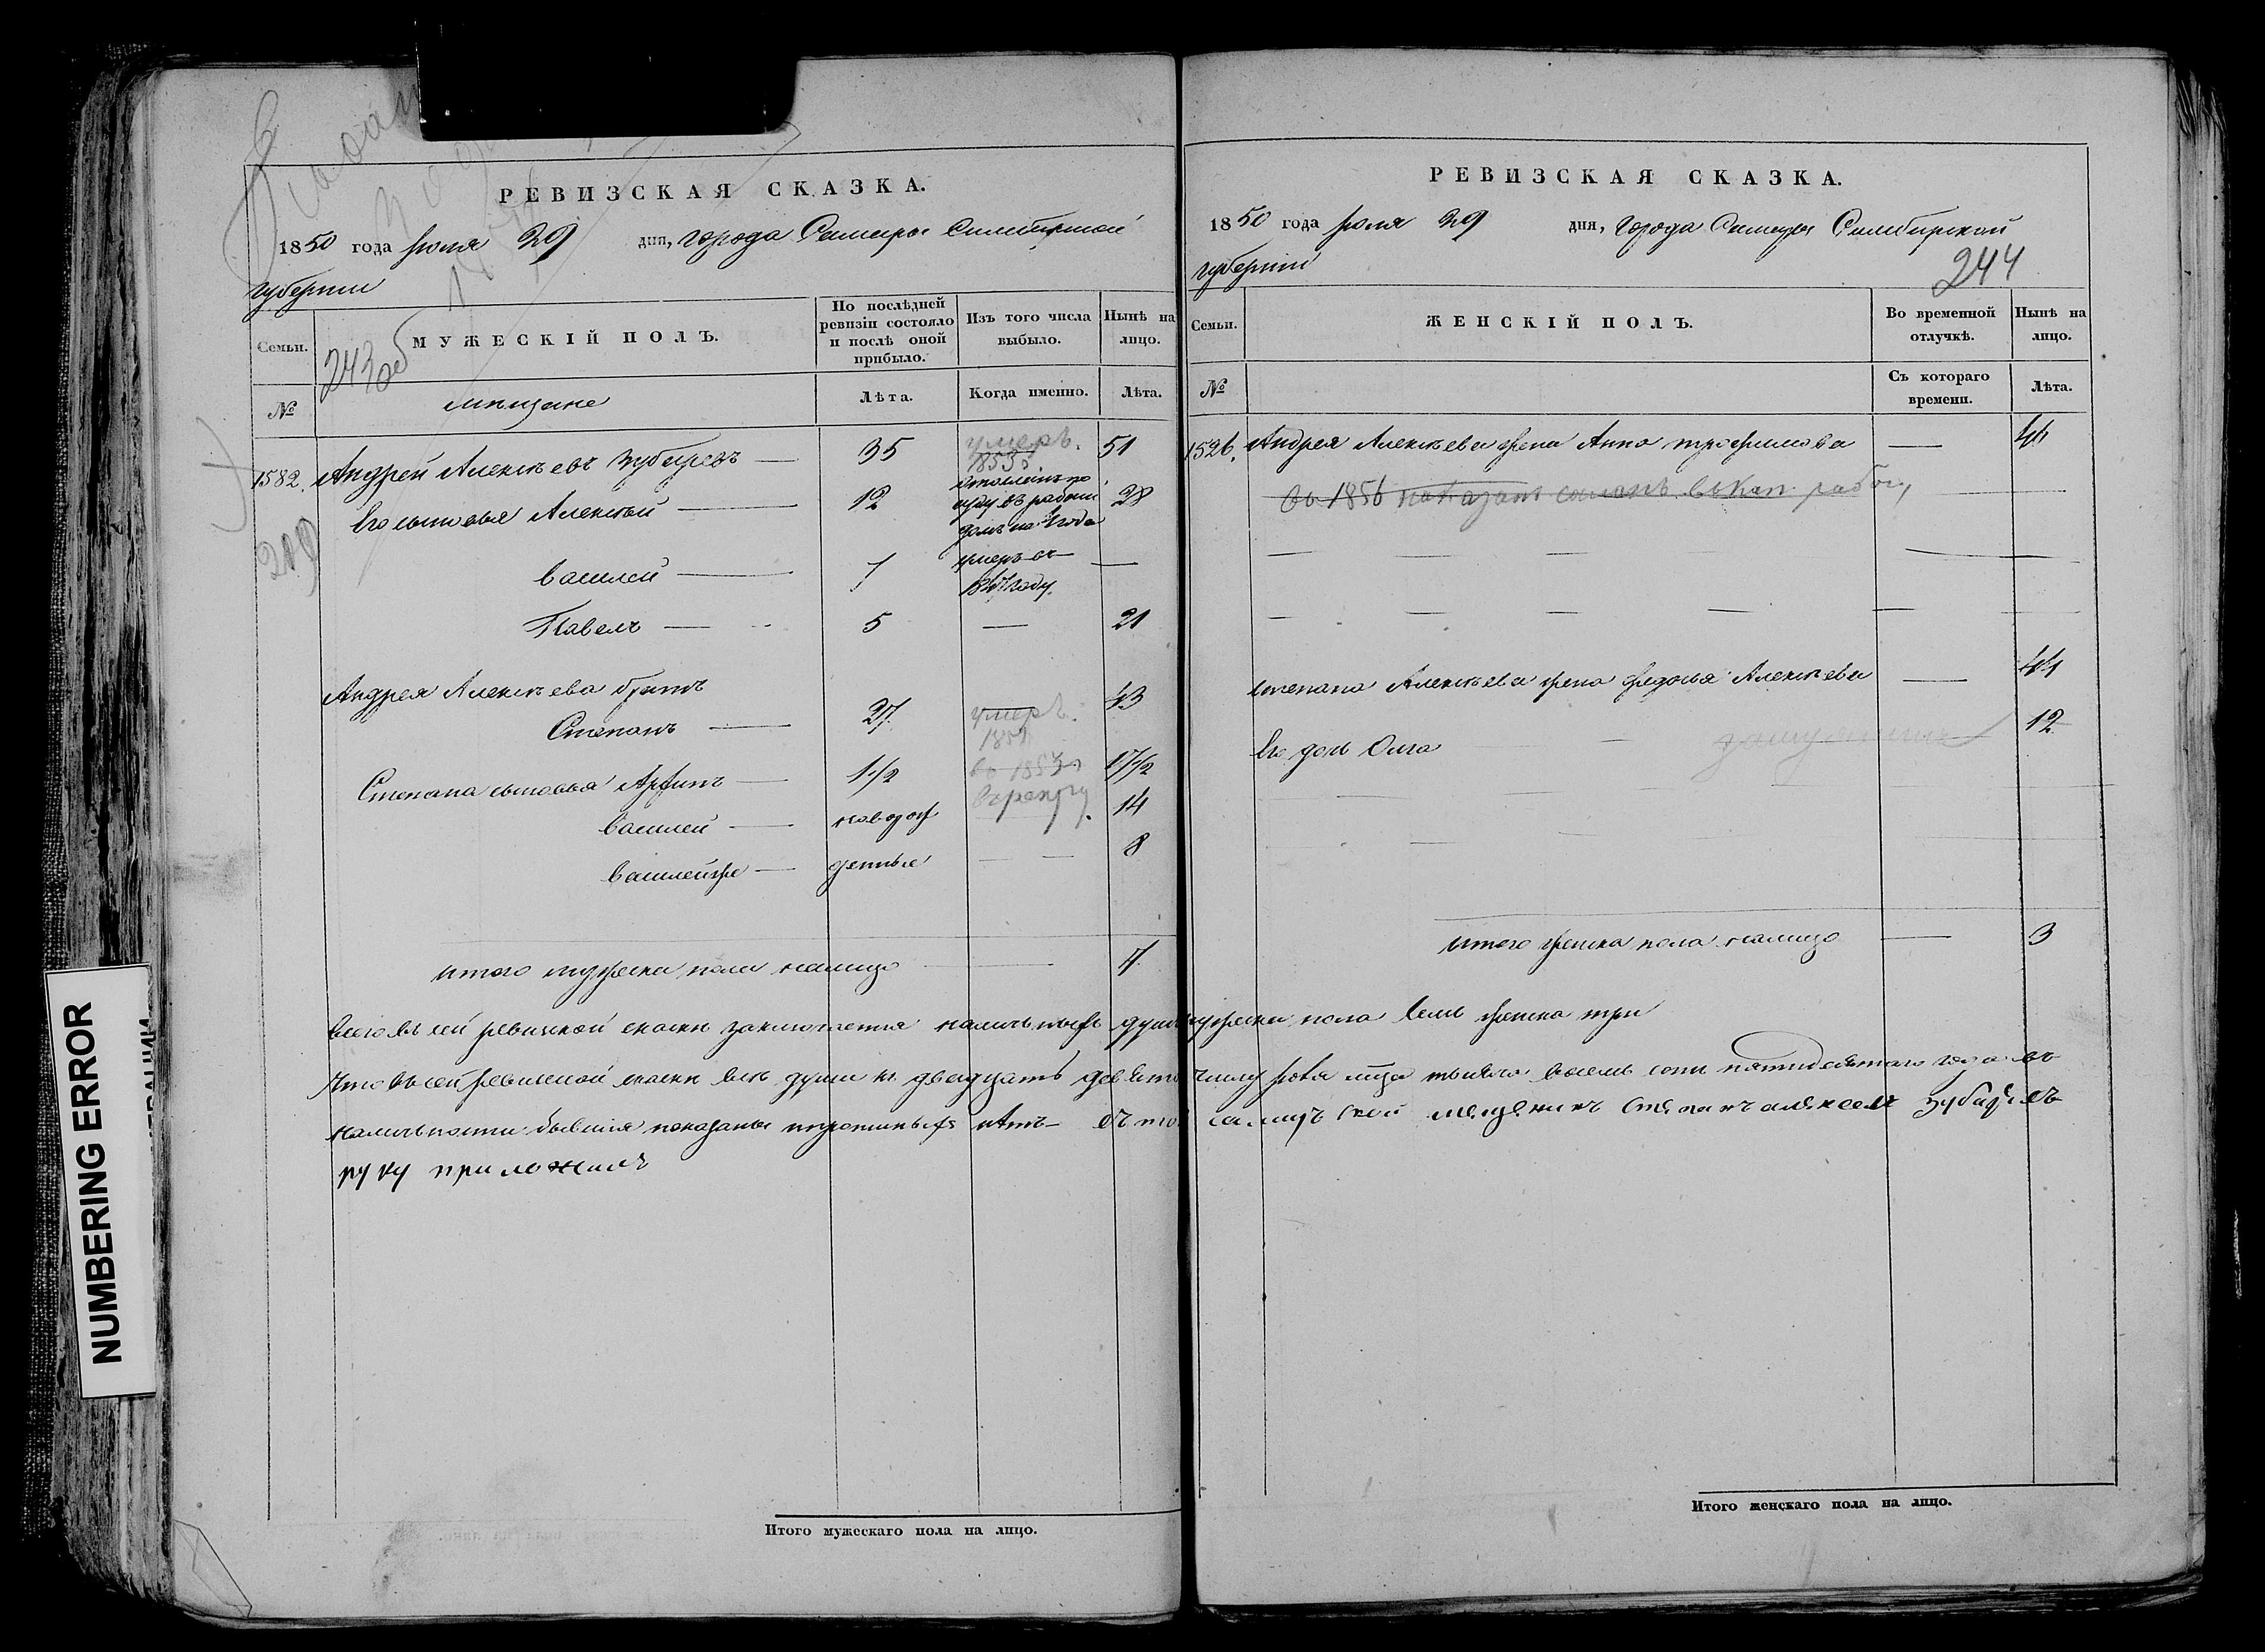 РЕВИЗСКАЯ СКАЗКА.
1850 года июля 29 дня, города Самары Симбирской
губернии
243 об
Семьи.
МУЖЕСКІЙ ПОЛЪ.
По послѣдней ревизіи состояло и послѣ оной прибыло.
Изъ того числа выбыло.
Нынѣ на лицо.
№
мѣщане
Лѣта.
Когда именно.
Лѣта.
1582. Андрей Алексѣевъ Зубаревъ — 35 умеръ. 1855 51
Его сыновья Алексѣй — 12 28
Василей — 1 умеръ въ году. —
Павелъ — 5 — 21
Андрея Алексѣева братъ
Степанъ — 27 умеръ. 43
Степана сыновья — 1 1/2 въ 1853 17 1/2
Василей — новорож 14
Василейже — денные — 8
Итого мужеска пола налицо — 7
РЕВИЗСКАЯ СКАЗКА.
1850 года июля 29 дня, города Самары Симбирской
губернии
244
Семьи.
ЖЕНСКІЙ ПОЛЪ.
Во временной отлучкѣ.
Нынѣ на лицо.
№
Съ котораго времени.
Лѣта.
1526. Андрея Алексѣева жена Анна Трофимова — 44
въ 1856 наказанъ сосланъ въ кап. работ.
Степана Алексѣева жена Федосья Алексѣева — 44
Его дочь Олга — 12
Итого женска пола налицо — 3
Всего въ сей ревизской сказкѣ заключается наличныхъ душъ мужеска пола семь женска три
Что въ сей ревизской сказкѣ всѣ души къ двадцать девятому числу июля мѣсяца тысяча восемь сотъ пятидесятаго года въ
наличности бывшія показаны и прописныхъ нѣтъ въ томъ самарской мещенинъ Степанъ алексеевъ Зубаревъ
руку приложилъ
Итого мужескаго пола на лицо.
Итого женскаго пола на лицо.
NUMBERING ERROR